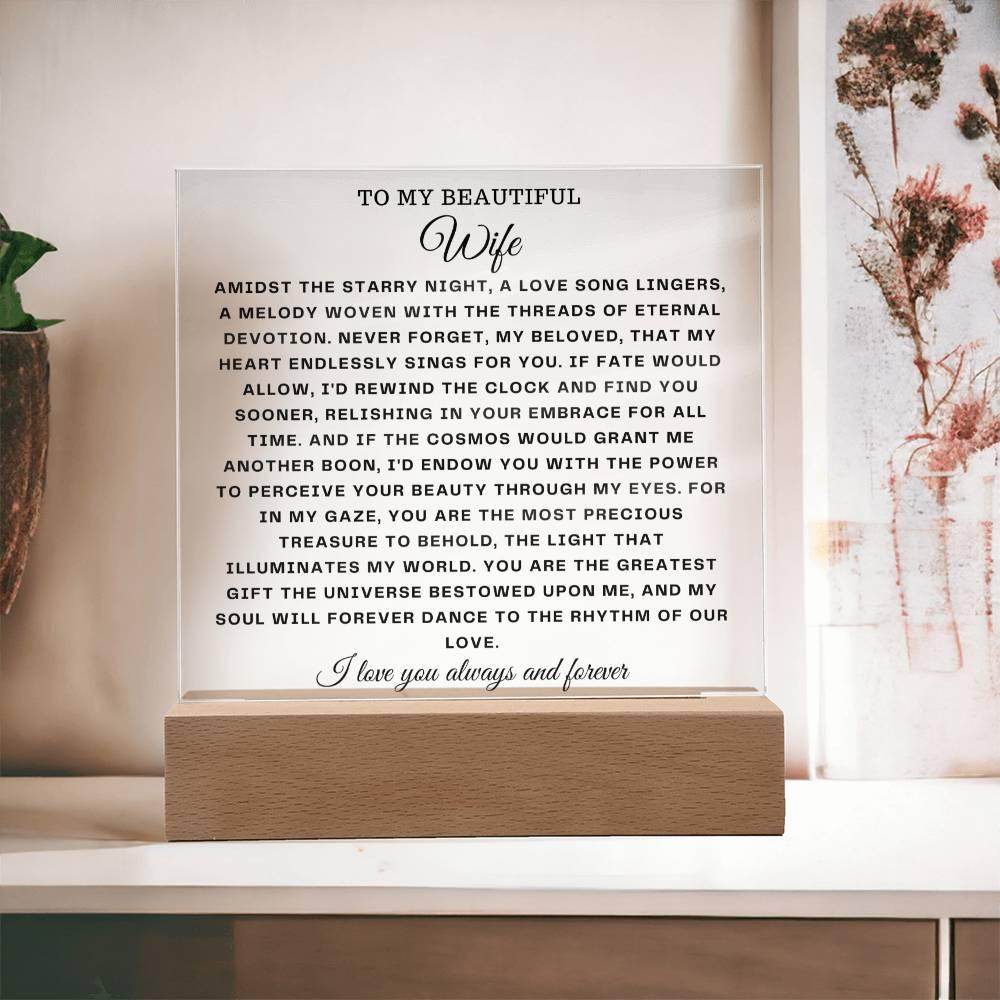 TO MY BEAUTIFUL
Wife
AMIDST THE STARRY NIGHT, A LOVE SONG LINGERS,
A MELODY WOVEN WITH THE THREADS OF ETERNAL
DEVOTION. NEVER FORGET, MY BELOVED, THAT MY
HEART ENDLESSLY SINGS FOR YOU. IF FATE WOULD
ALLOW, I'D REWIND THE CLOCK AND FIND YOU
SOONER, RELISHING IN YOUR EMBRACE FOR ALL
TIME. AND IF THE COSMOS WOULD GRANT ME
ANOTHER BOON, I'D ENDOW YOU WITH THE POWER
TO PERCEIVE YOUR BEAUTY THROUGH MY EYES. FOR
IN MY GAZE, YOU ARE THE MOST PRECIOUS
TREASURE TO BEHOLD, THE LIGHT THAT
ILLUMINATES MY WORLD. YOU ARE THE GREATEST
GIFT THE UNIVERSE BESTOWED UPON ME, AND MY
SOUL WILL FOREVER DANCE TO THE RHYTHM OF OUR
LOVE.
I love you always and forever